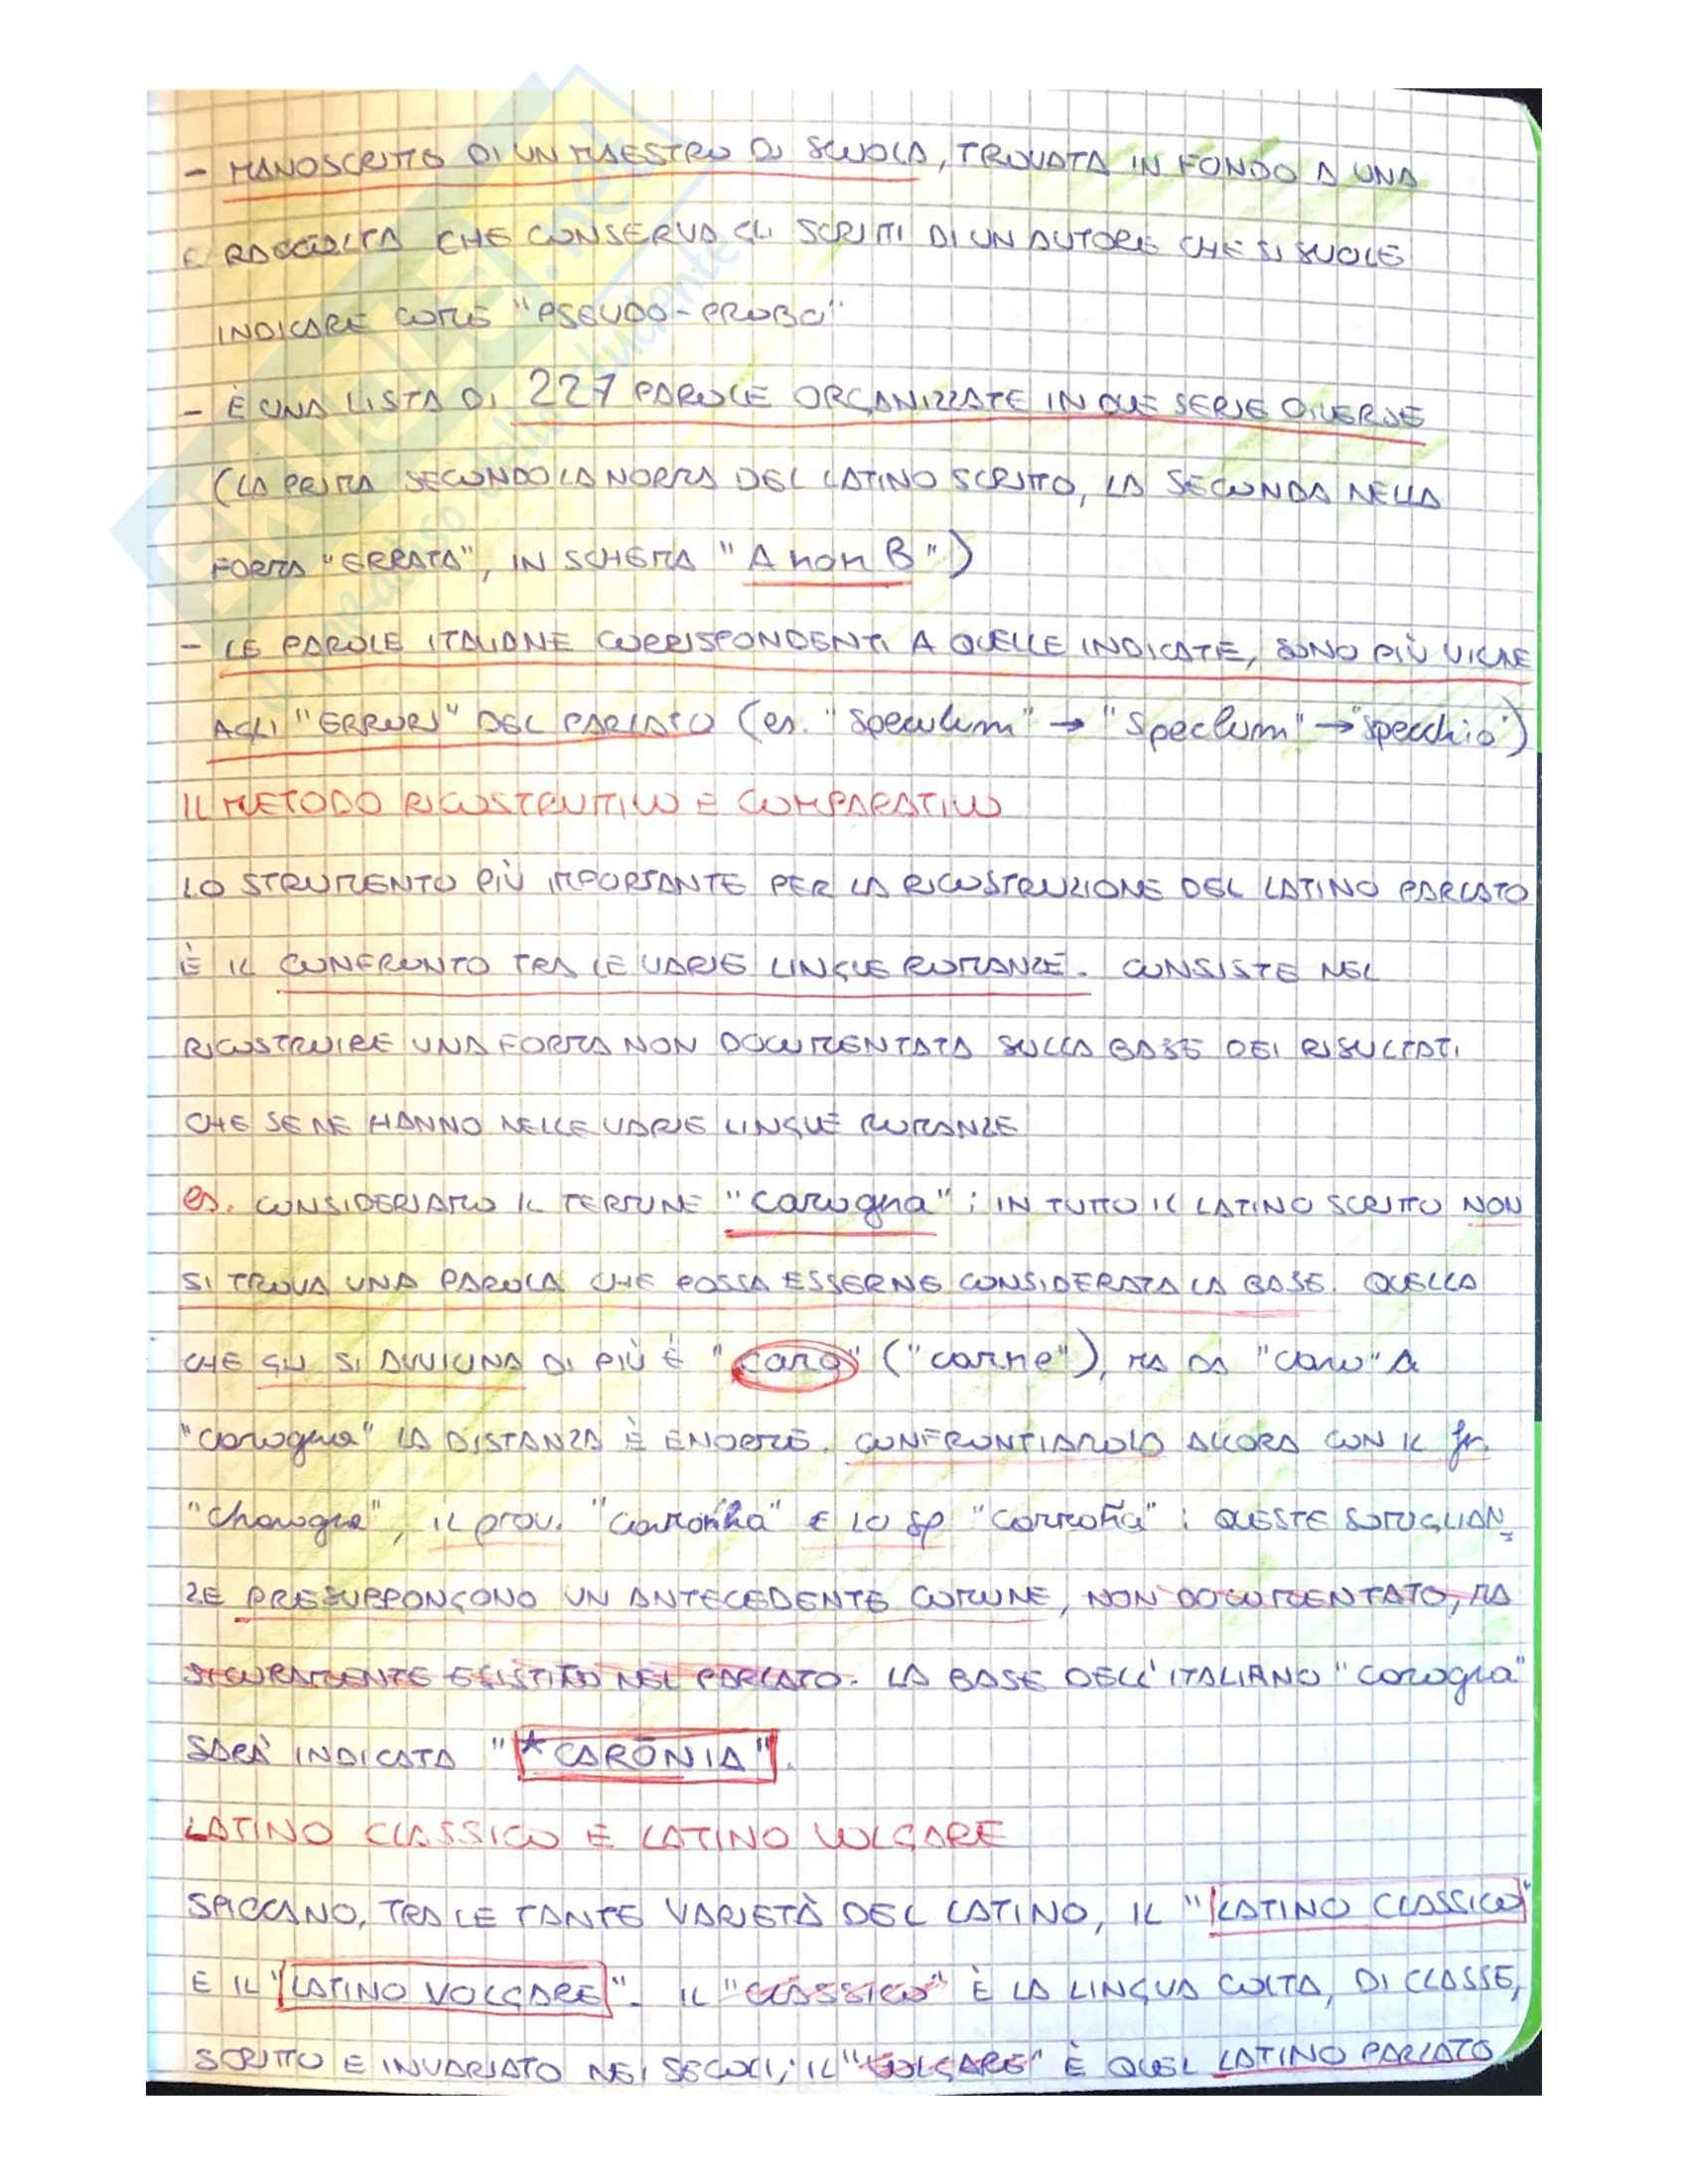 - MANOSCRITTO DI UN MAESTRO DI SCUOLA, TROVATA IN FONDO A UNA
RACCOLTA CHE CONSERVA GLI SCRITTI DI UN AUTORE CHE SI SUOLE
INDICARE COME "PSEUDO-PROBO"
- È UNA LISTA DI 227 PAROLE ORGANIZZATE IN DUE SERIE DIVERSE
(LA PRIMA SECONDO LA NORMA DEL LATINO SCRITTO, LA SECONDA NELLA
FORMA "ERRATA", IN SCHEMA "A non B")
- LE PAROLE ITALIANE CORRISPONDENTI A QUELLE INDICATE, SONO PIÙ VICINE
AGLI "ERRORI" DEL PARLATO (es. "speculum" → "speclum" → "specchio")
IL METODO RICOSTRUTTIVO E COMPARATIVO
LO STRUMENTO PIÙ IMPORTANTE PER LA RICOSTRUZIONE DEL LATINO PARLATO
È IL CONFRONTO TRA LE VARIE LINGUE ROMANZE. CONSISTE NEL
RICOSTRUIRE UNA FORMA NON DOCUMENTATA SULLA BASE DEI RISULTATI
CHE SE NE HANNO NELLE VARIE LINGUE ROMANZE
es. CONSIDERIAMO IL TERMINE "carogna": IN TUTTO IL LATINO SCRITTO NON
SI TROVA UNA PAROLA CHE POSSA ESSERNE CONSIDERATA LA BASE. QUELLA
CHE GLI SI AVVICINA DI PIÙ È "caro" ("carne"), MA DA "caro" A
"carogna" LA DISTANZA È ENORME. CONFRONTIAMOLO ALLORA CON IL fr.
"charogne", IL prov. "caronha" E LO sp "carroña": QUESTE SOMIGLIAN_
ZE PRESUPPONGONO UN ANTECEDENTE COMUNE, NON DOCUMENTATO, MA
SICURAMENTE ESISTITO NEL PARLATO. LA BASE DELL'ITALIANO "carogna"
SARÀ INDICATA "*CARŌNIA".
LATINO CLASSICO E LATINO VOLGARE
SPICCANO, TRA LE TANTE VARIETÀ DEL LATINO, IL "LATINO CLASSICO"
E IL "LATINO VOLGARE". IL "CLASSICO" È LA LINGUA COLTA, DI CLASSE,
SCRITTO E INVARIATO NEI SECOLI; IL "VOLGARE" È QUEL LATINO PARLATO